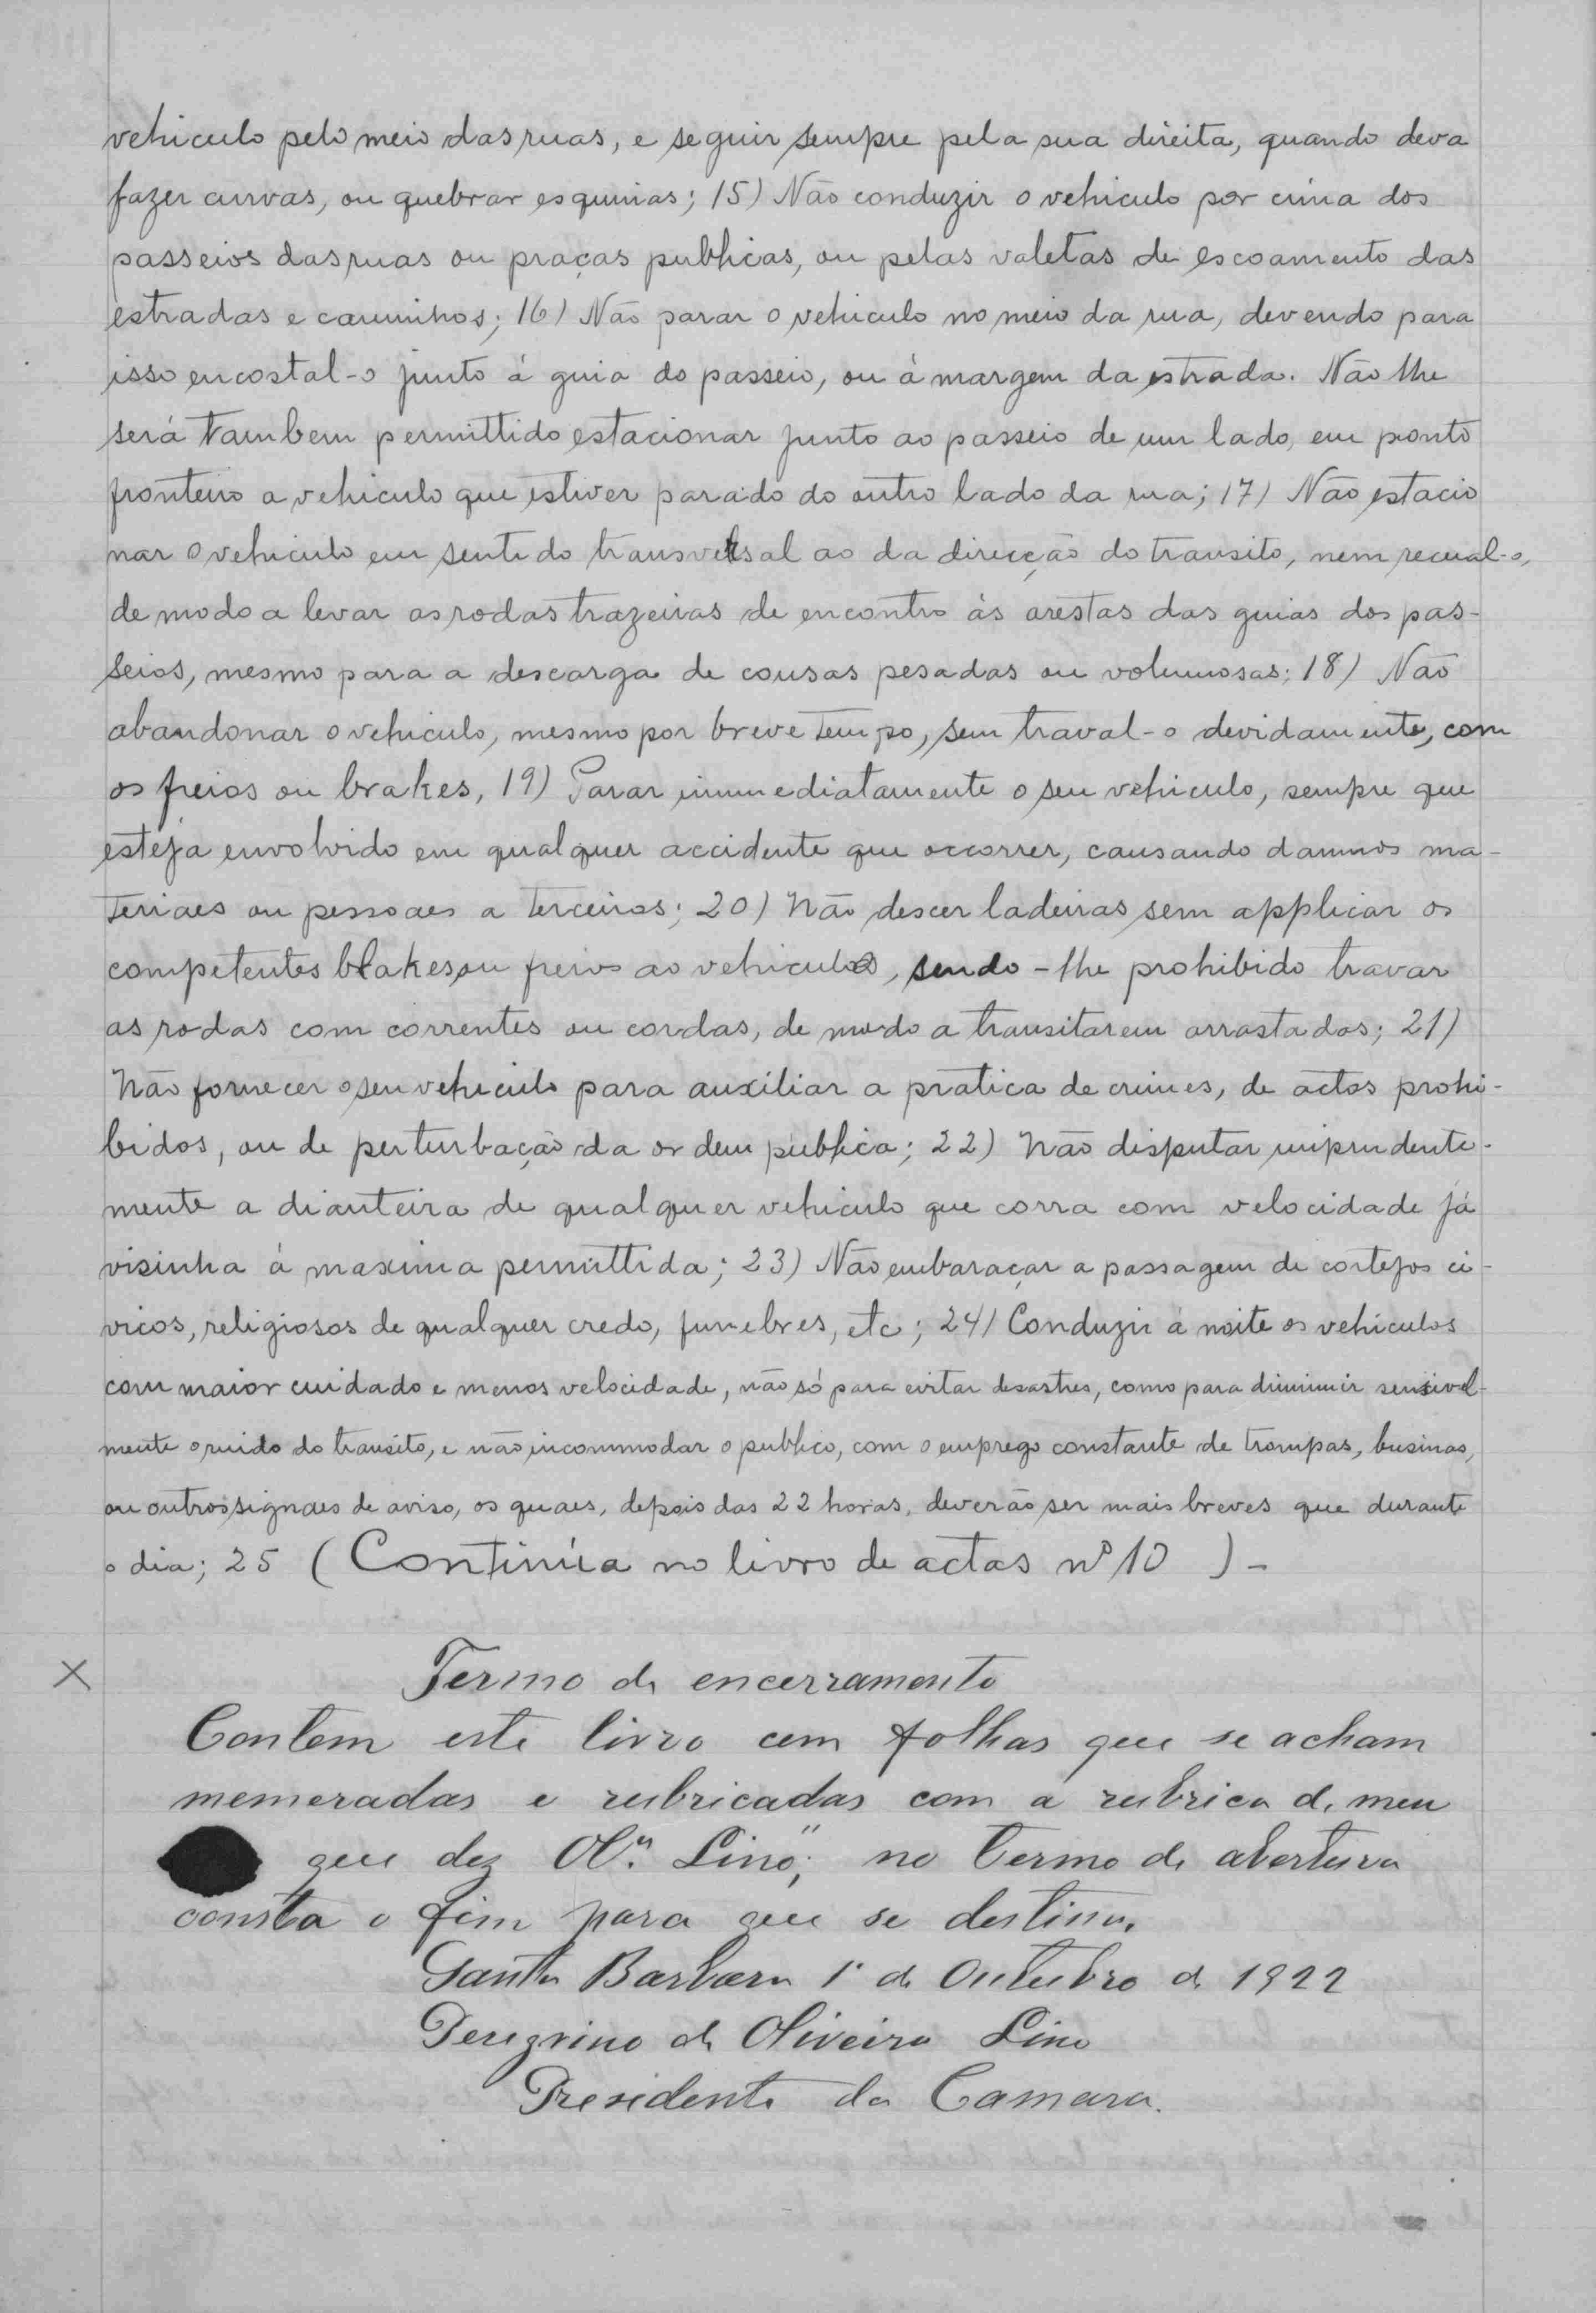 vehiculo pelo meio das ruas, e seguir sempre pela sua direita, quando deva
fazer curvas, ou quebrar esquinas; 15) Não conduzir o vehiculo por cima dos
passeios das ruas ou praças publicas, ou pelas valetas de escoamento das
estradas e caminhos; 16) Não parar o vehiculo no meio da rua, devendo para
isso encostal-o junto á guia do passeio, ou á margem da estrada. Não lhe
será tambem permittido estacionar junto ao passeio de um lado, em ponto
fronteiro a vehiculo que estiver parado do outro lado da rua; 17) Não estacio
nar o vehiculo em sentido transversal ao da direcção do transito, nem recual-o,
de modo a levar as rodas trazeiras de encontro ás arestas das guias dos pas-
seios, mesmo para a descarga de cousas pesadas ou volumosas; 18) Não
abandonar o vehiculo, mesmo por breve tempo, sem traval-o devidamente, com
os freios ou brakes, 19) Parar immediatamente o seu vehiculo, sempre que
esteja envolvido em qualquer accidente que occorrer, causando damnos ma-
teriaes ou pessoaes a terceiros; 20) Não descer ladeiras sem applicar os
competentes brakes, ou freios ao vehiculo, sendo-lhe prohibido travar
as rodas com correntes ou cordas, de modo a transitarem arrastadas; 21)
Não fornecer o seu vehiculo para auxiliar a pratica de crimes, de actos prohi-
bidos, ou de perturbação da ordem publica; 22) Não disputar imprudente-
mente a dianteira de qualquer vehiculo que corra com velocidade já
visinha á maxima permittida; 23) Não embaraçar a passagem de cortejos ci-
vicos, religiosos de qualquer credo, funebres, etc; 24) Conduzir á noite os vehiculos
com maior cuidado e menos velocidade, não só para evitar desastres, como para diminuir sensivel-
mente o ruido do transito, e não incommodar o publico, com o emprego constante de trompas, businas,
ou outros signaes de aviso, os quaes, depois das 22 horas, deverão ser mais breves que durante
o dia; 25 (Continúa no livro de actas nº 10 ) -
Termo de encerramento
Contem este livro cem folhas que se acham
memeradas e rubricadas com a rubrica de meu
que dez Olª. Lino"; no termo de abertura
consta o fim para que se destina.
Santa Barbara 1º de Outubro de 1922
Peregrino de Oliveira Lino
Presidente da Camara.